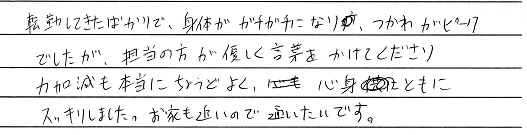 転勤してきたばかりで、身体がガチガチになり、つかれがピーク
でしたが、担当の方が優しく言葉をかけてくださり
力加減も本当にちょうどよく、心身ともに
スッキリしました。お家も近いので通いたいです。